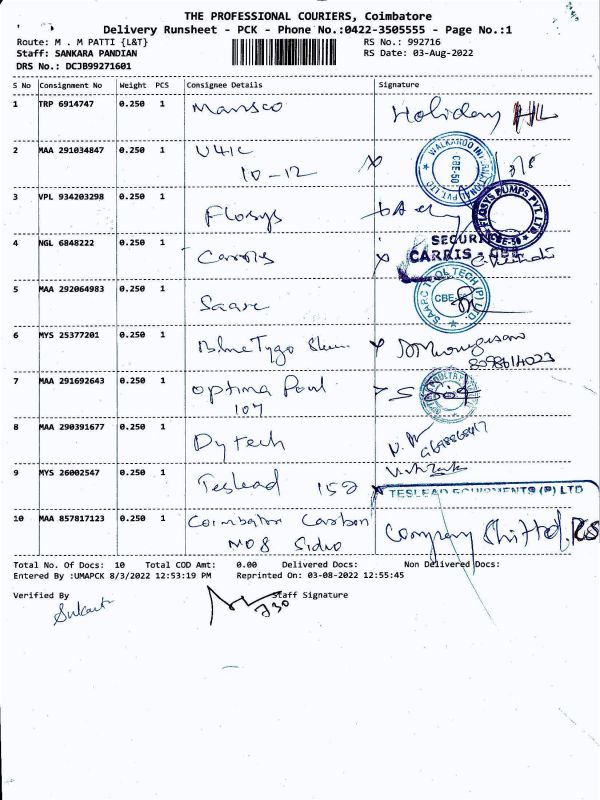 THE PROFESSIONAL COURIERS, Coimbatore
Delivery Runsheet - PCK - Phone No.:0422-3505555 - Page No.:1
Route: M . M PATTI {L&T} RS No.: 992716
Staff: SANKARA PANDIAN RS Date: 03-Aug-2022
DRS No.: DCJB99271601
S No Consignment No Weight PCS Consignee Details Signature
1 TRP 6914747 0.250 1 Mansco Holiday
2 MAA 291034847 0.250 1 U41C
10-12
WALKAROO INTERNATIONAL PVT. LTD CBE-50
3 VPL 934203298 0.250 1 Flosys
FLOSYS PUMPS PVT. LTD. CBE-50
4 NGL 6848222 0.250 1 Carris
SECURITY
CARRIS - CBE
5 MAA 292064983 0.250 1 Saarc
SAARC TOOL TECH (P) LTD. CBE
6 MYS 25377201 0.250 1 Blue Tygo
8098614023
7 MAA 291692643 0.250 1 Optima Poul
107
8 MAA 290391677 0.250 1 Dytech
9 MYS 26002547 0.250 1 Teslead 152
TESLEAD EQUIPMENTS (P) LTD
10 MAA 857817123 0.250 1 Coimbator Carbon Company Shitted. RS
M08 Sidco
Total No. Of Docs: 10 Total COD Amt: 0.00 Delivered Docs: Non Delivered Docs:
Entered By :UMAPCK 8/3/2022 12:53:19 PM Reprinted On: 03-08-2022 12:55:45
Verified By Staff Signature
730